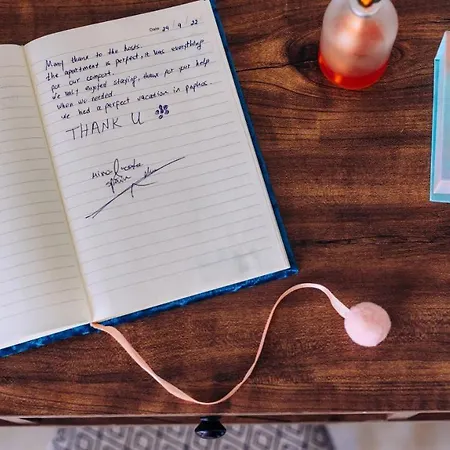 Date 29 9 22
Many thanks to the hosts.
the apartment is perfect, it has everything
for our comfort.
we really enjoyed staying, thanks for your help
when we needed.
we had a perfect vacation in paphos.
THANK U